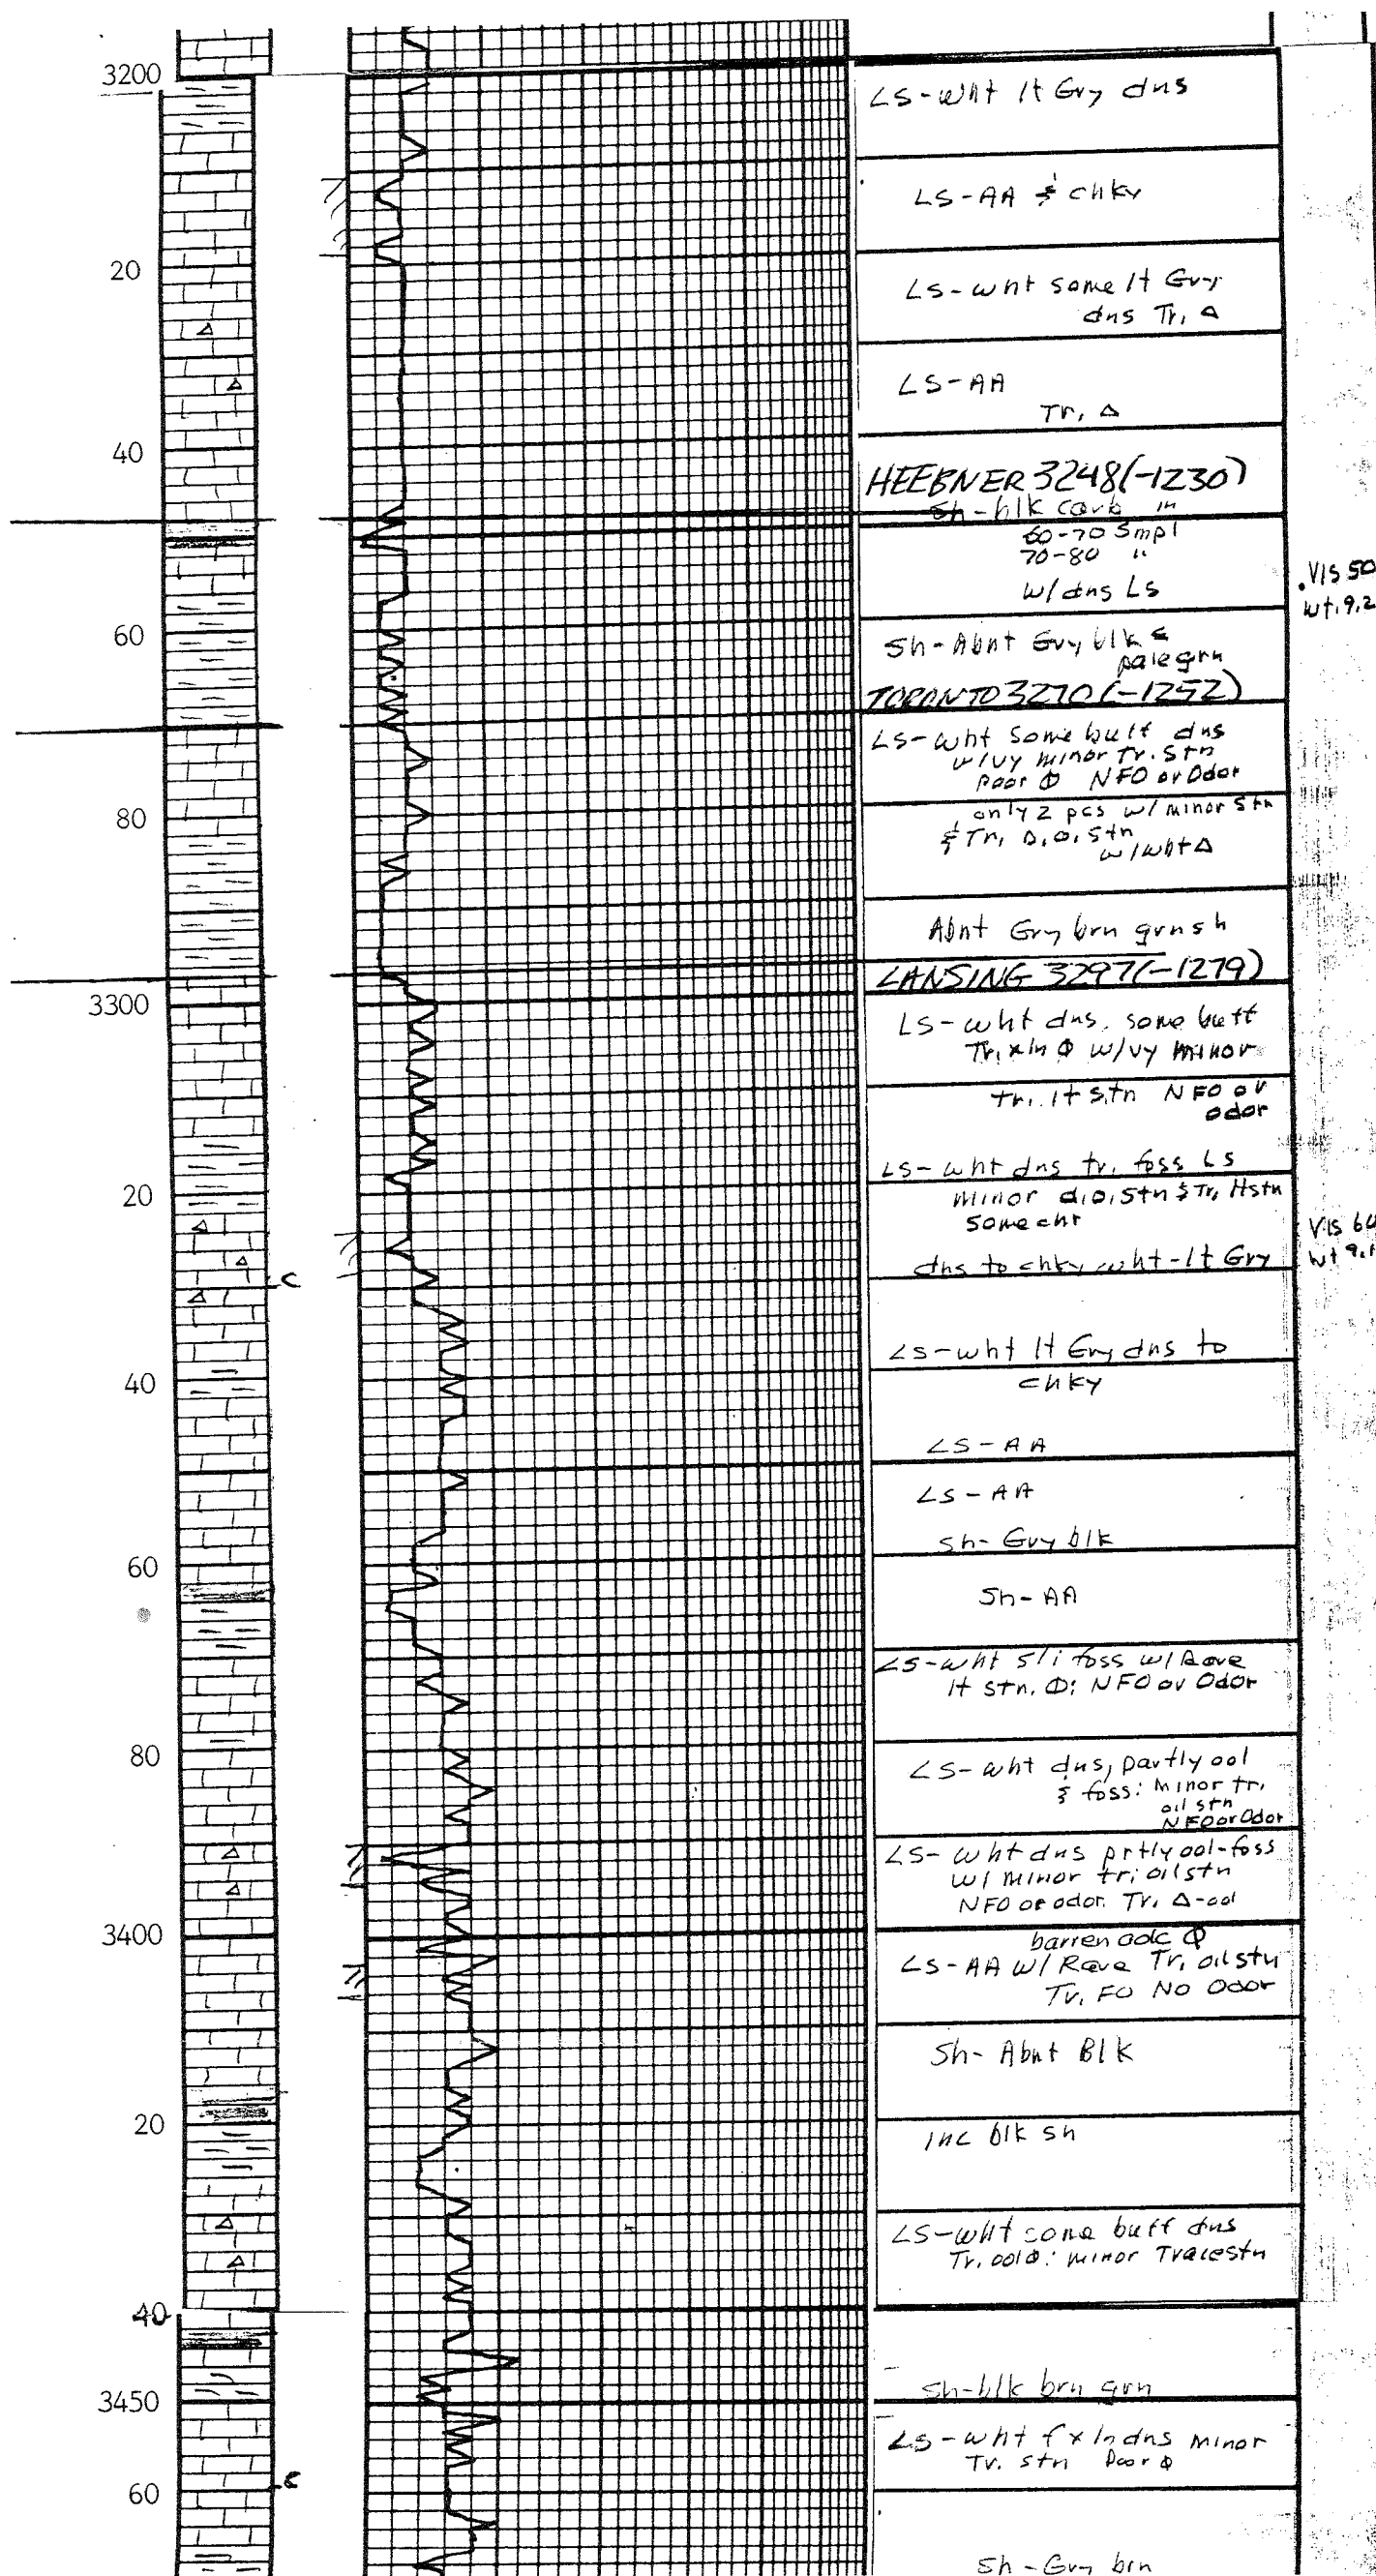 3200
LS-Wht lt Gry dns
LS-AA & chky
20
LS-wht some lt Gry
dns Tr. Δ
LS-AA
Tr. Δ
40
HEEBNER 3248(-1230)
Sh-blk carb in
60-70 Smpl
70-80 "
w/dns Ls
Vis 50
wt. 9.2
60
Sh-Abnt Gry blk &
pale grn
TORONTO 3270 (-1252)
LS-wht some buff dns
w/vy minor tr. stn
Poor Φ NFO or Odor
80
only 2 pcs w/minor stn
& Tr. D.O. Stn
w/wht Δ
Abnt Gry brn grn sh
LANSING 3297(-1279)
3300
LS-wht dns. some buff
Tr. xln Φ w/vy minor
tr. lt stn NFO or
odor
LS-wht dns tr. foss LS
20
minor d.o. stn & Tr. lt stn
some cht
Vis 60
wt 9.1
dns to chky wht-lt Gry
C
LS-wht lt Gry dns to
40
chky
LS-AA
LS-AA
Sh-Gry blk
60
Sh-AA
LS-wht sli foss w/Rare
lt stn. Φ: NFO or Odor
80
LS-wht dns, partly ool
& foss: minor tr.
oil stn
NFO or Odor
LS-wht dns prtly ool-foss
w/minor tr. oil stn
NFO or odor. Tr. Δ-ool
3400
barren oolc Φ
LS-AA w/Rare Tr. oil stn
Tr. FO No Odor
Sh-Abnt Blk
20
Inc blk sh
LS-wht some buff dns
Tr. ool Φ: minor Trace stn
40
Sh-blk brn grn
3450
LS-wht fxln dns minor
Tr. stn Poor Φ
60
Sh-Gry brn